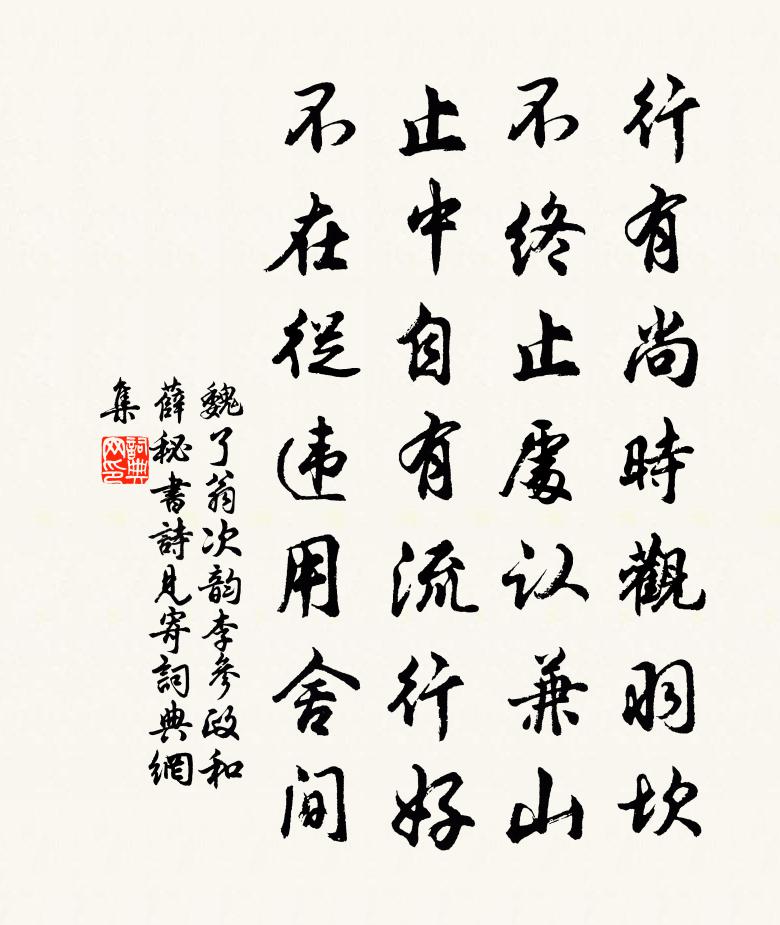 行有尚時觀羽坎
不終止處认兼山
止中自有流行好
不在從违用舍间
魏了翁次韵李參政和
薛秘書詩見寄詞典網
集
詞典网印